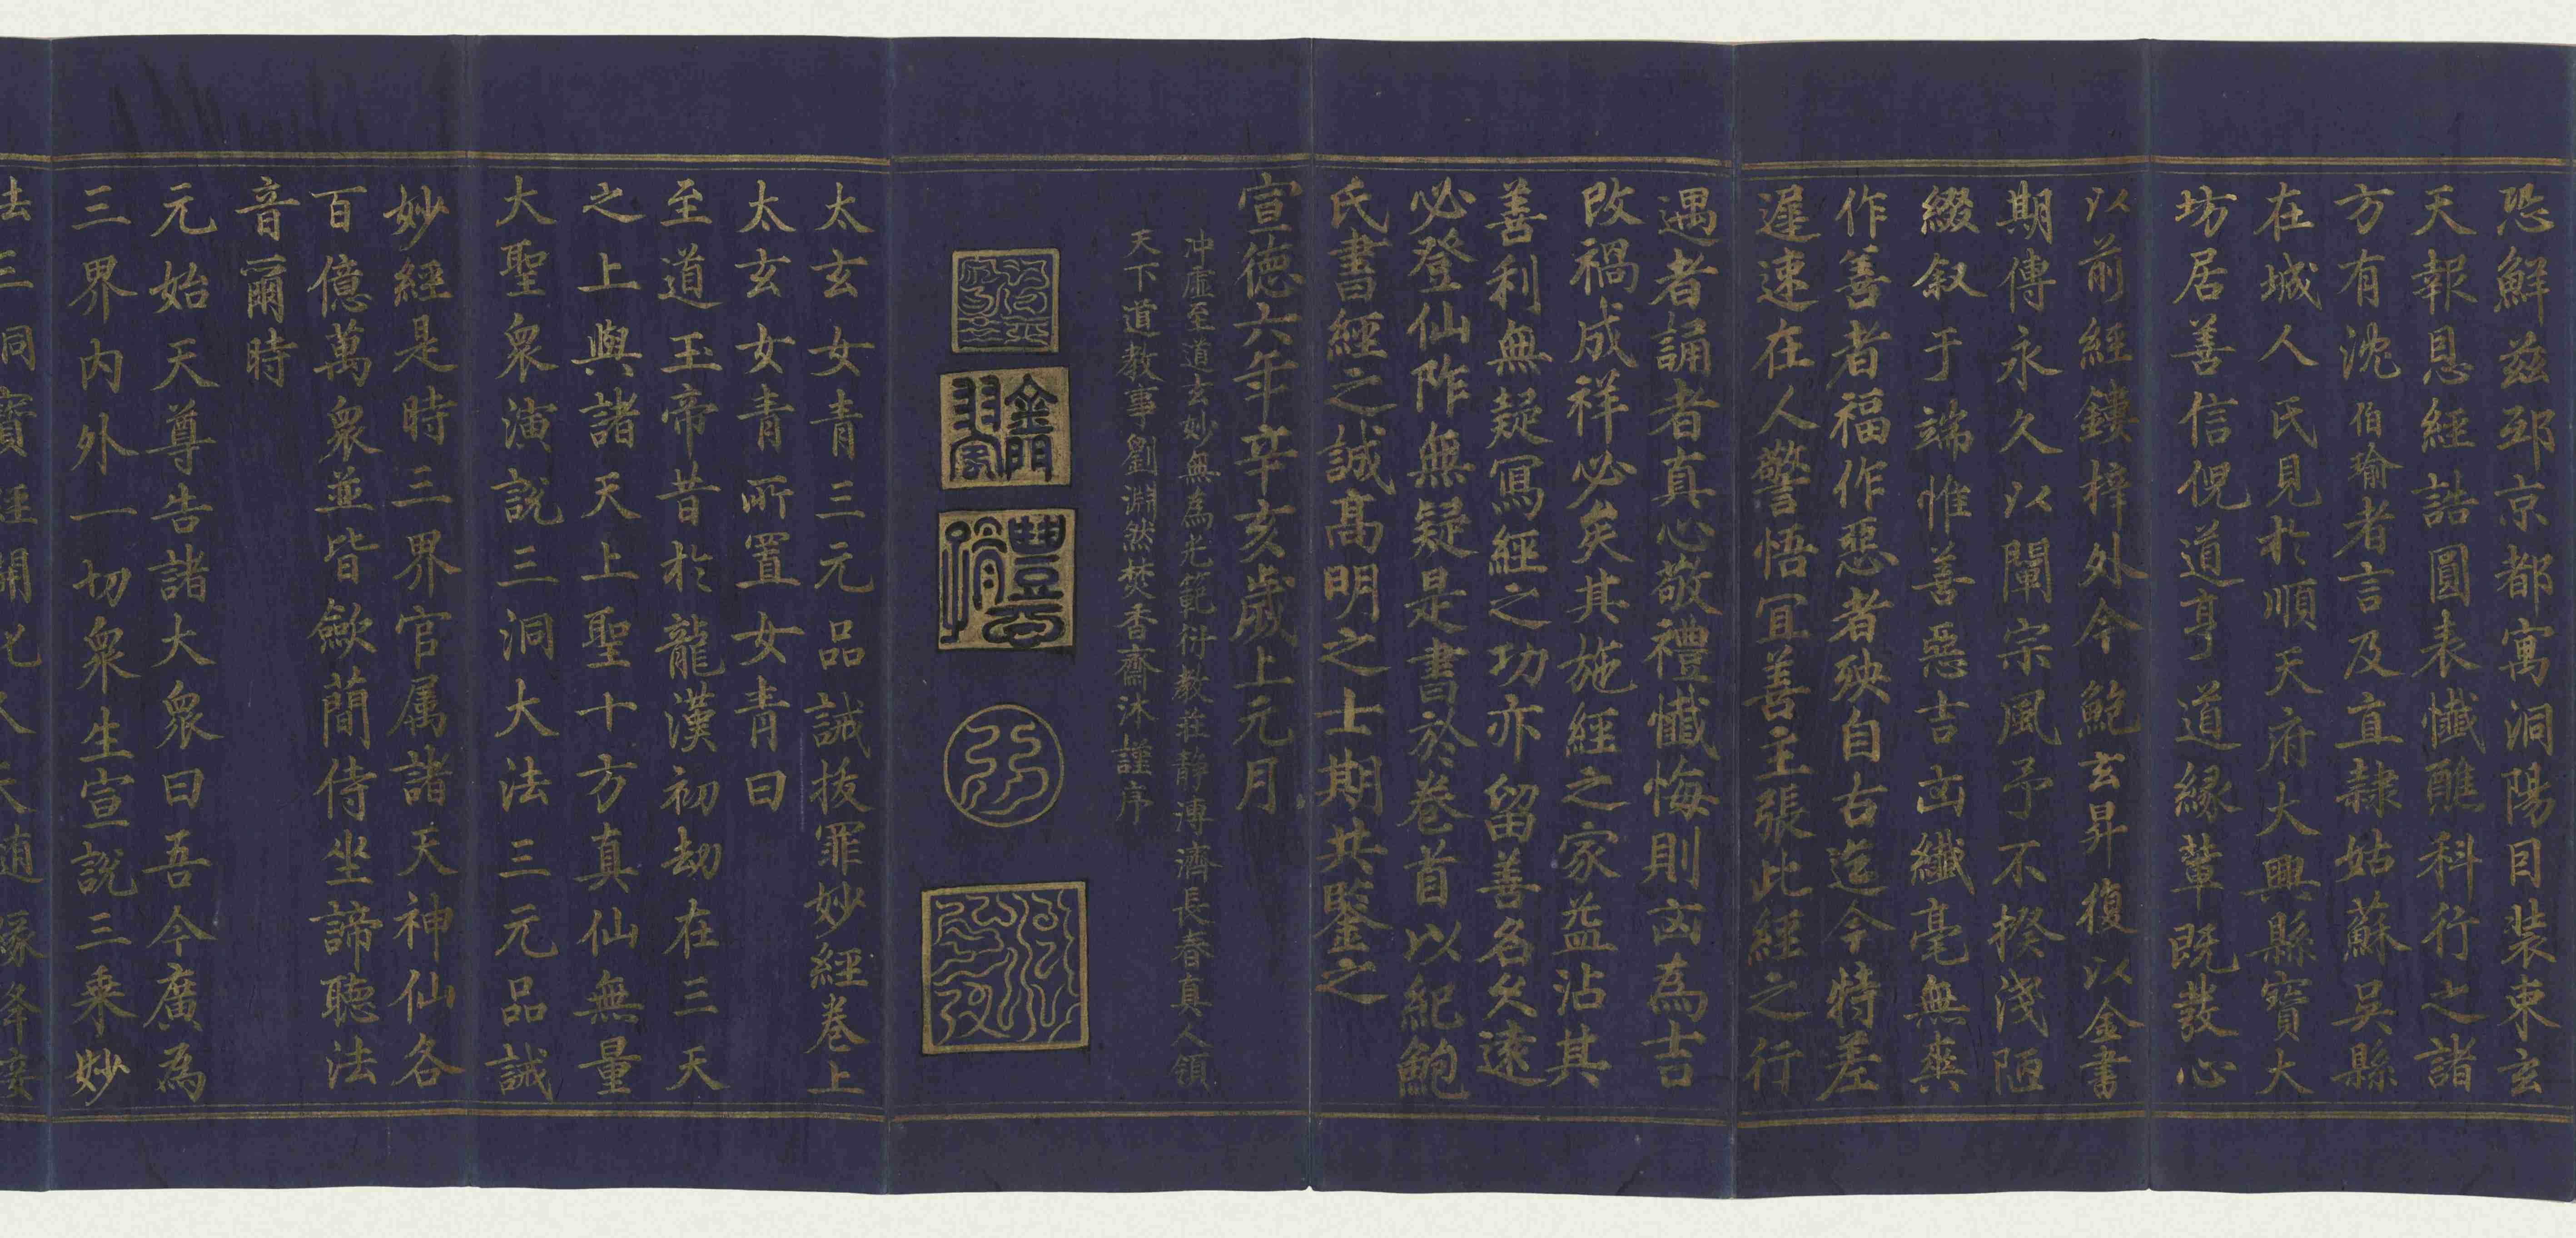 恐鮮兹邳京都寓洞陽目装東玄
天報恩經誥圓表懺醮科行之諸
方有沈伯瑜者言及直隸姑蘇吳縣
在城人氏見於順天府大興縣寶大
坊居善信倪道亨道緣輩既發心
以前經鏤梓外今鮑玄昇復以金書
期傳永久以闡宗風予不揆淺陋
綴叙于端惟善惡吉凶纖毫無爽
作善者福作惡者殃自古迄今特差
遲速在人警悟冝善主張此經之行
遇者誦者真心敬禮懺悔則凶為吉
改禍成祥必矣其施經之家益沾其
善利無疑寫經之功亦留善名久遠
必登仙阼無疑是書於卷首以紀鮑
氏書經之誠髙明之士期共鑒之
宣德六年辛亥歲上元月
沖虛至道玄妙無為光範衍教莊靜溥濟長春真人領
天下道教事劉淵然焚香齋沐謹序
太玄女青三元品誡拔罪妙經卷上
太玄女青所置女青曰
至道玉帝昔於龍漢初劫在三天
之上與諸天上聖十方真仙無量
大聖衆演說三洞大法三元品誡
妙經是時三界官属諸天神仙各
百億萬衆並皆歛蕳侍坐諦聽法
音爾時
元始天尊告諸大衆曰吾今廣為
三界内外一切衆生宣說三乘妙
法三洞寶經開化人天